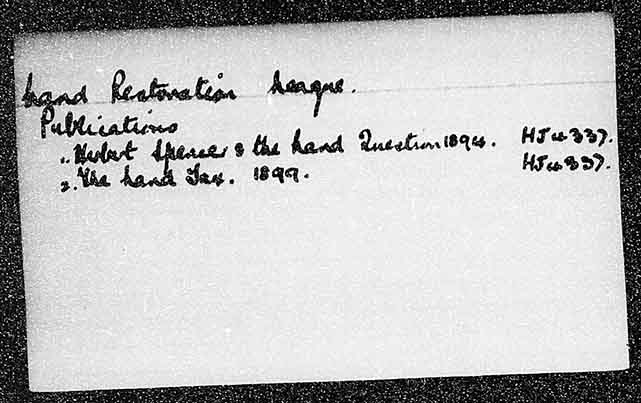 Land Restoration League.
Publications
1. Herbert Spencer & the Land Question 1894. HJ 4337.
2. The Land Tax. 1899. HJ 4337.